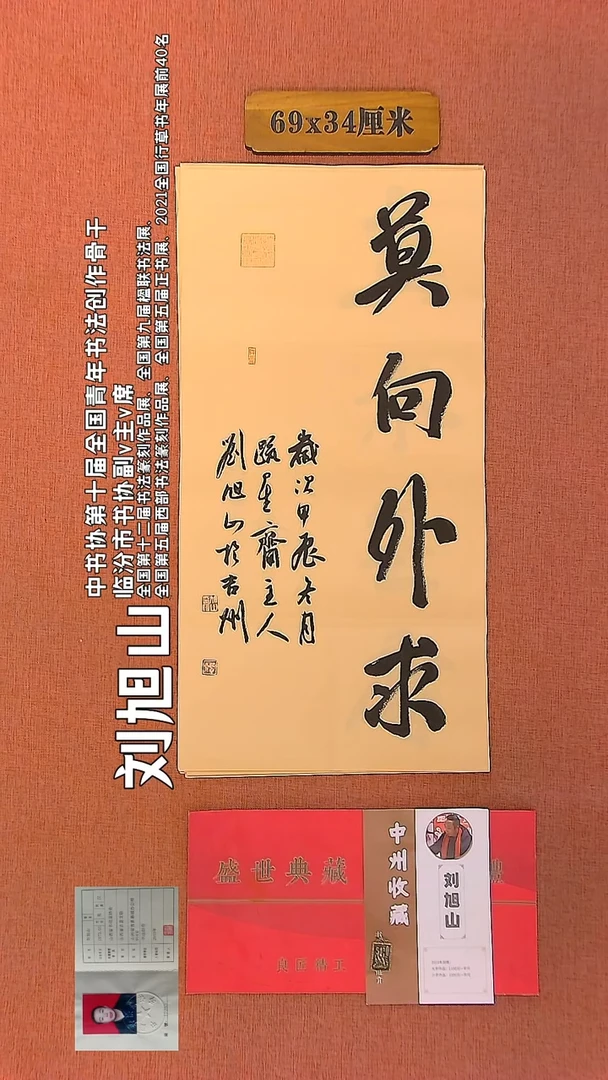 69x34厘米
莫向外求
歲次甲辰冬月
齋主人
劉旭山於吉州
刘旭山
中书协第十届全国青年书法创作骨干
临汾市书协副v主v席
全国第十二届书法篆刻作品展、全国第九届楹联书法展、
全国第五届西部书法篆刻作品展、全国第五届正书展、2021全国行草书年展前40名
盛世典藏
良匠精工
中州收藏
刘旭山